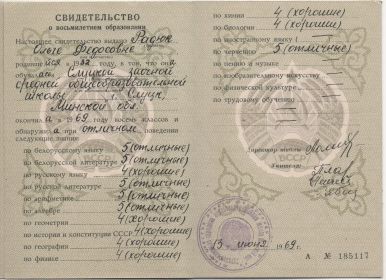 СВИДЕТЕЛЬСТВО
о восьмилетнем образовании
Настоящее свидетельство выдано Радюк
Ольге Федосовне
родившейся в 1952 году, в том, что она
обучалась Слуцкой заочной
средней общеобразовательной
школы г. Слуцк,
Минской обл.
окончила в 1969 году восемь классов и
обнаружила при отличном поведении
следующие знания:
по белорусскому языку 5 (отличные)
по белорусской литературе 5 (отличные)
по русскому языку 4 (хорошие)
по русской литературе 5 (отличные)
по арифметике 5 (отличные)
по алгебре 5 (отличные)
по геометрии 4 (хорошие)
по истории и конституции СССР 4 (хорошие)
по географии 4 (хорошие)
по физике 4 (хорошие)
по химии 4 (хорошие)
по биологии 4 (хорошие)
по иностранному языку (
по черчению 5 (отличные)
по пению и музыке
по изобразительному искусству
по физической культуре
по трудовому обучению
Директор школы
Учителя:
БССР
13 июня 1969 г.
А № 185117